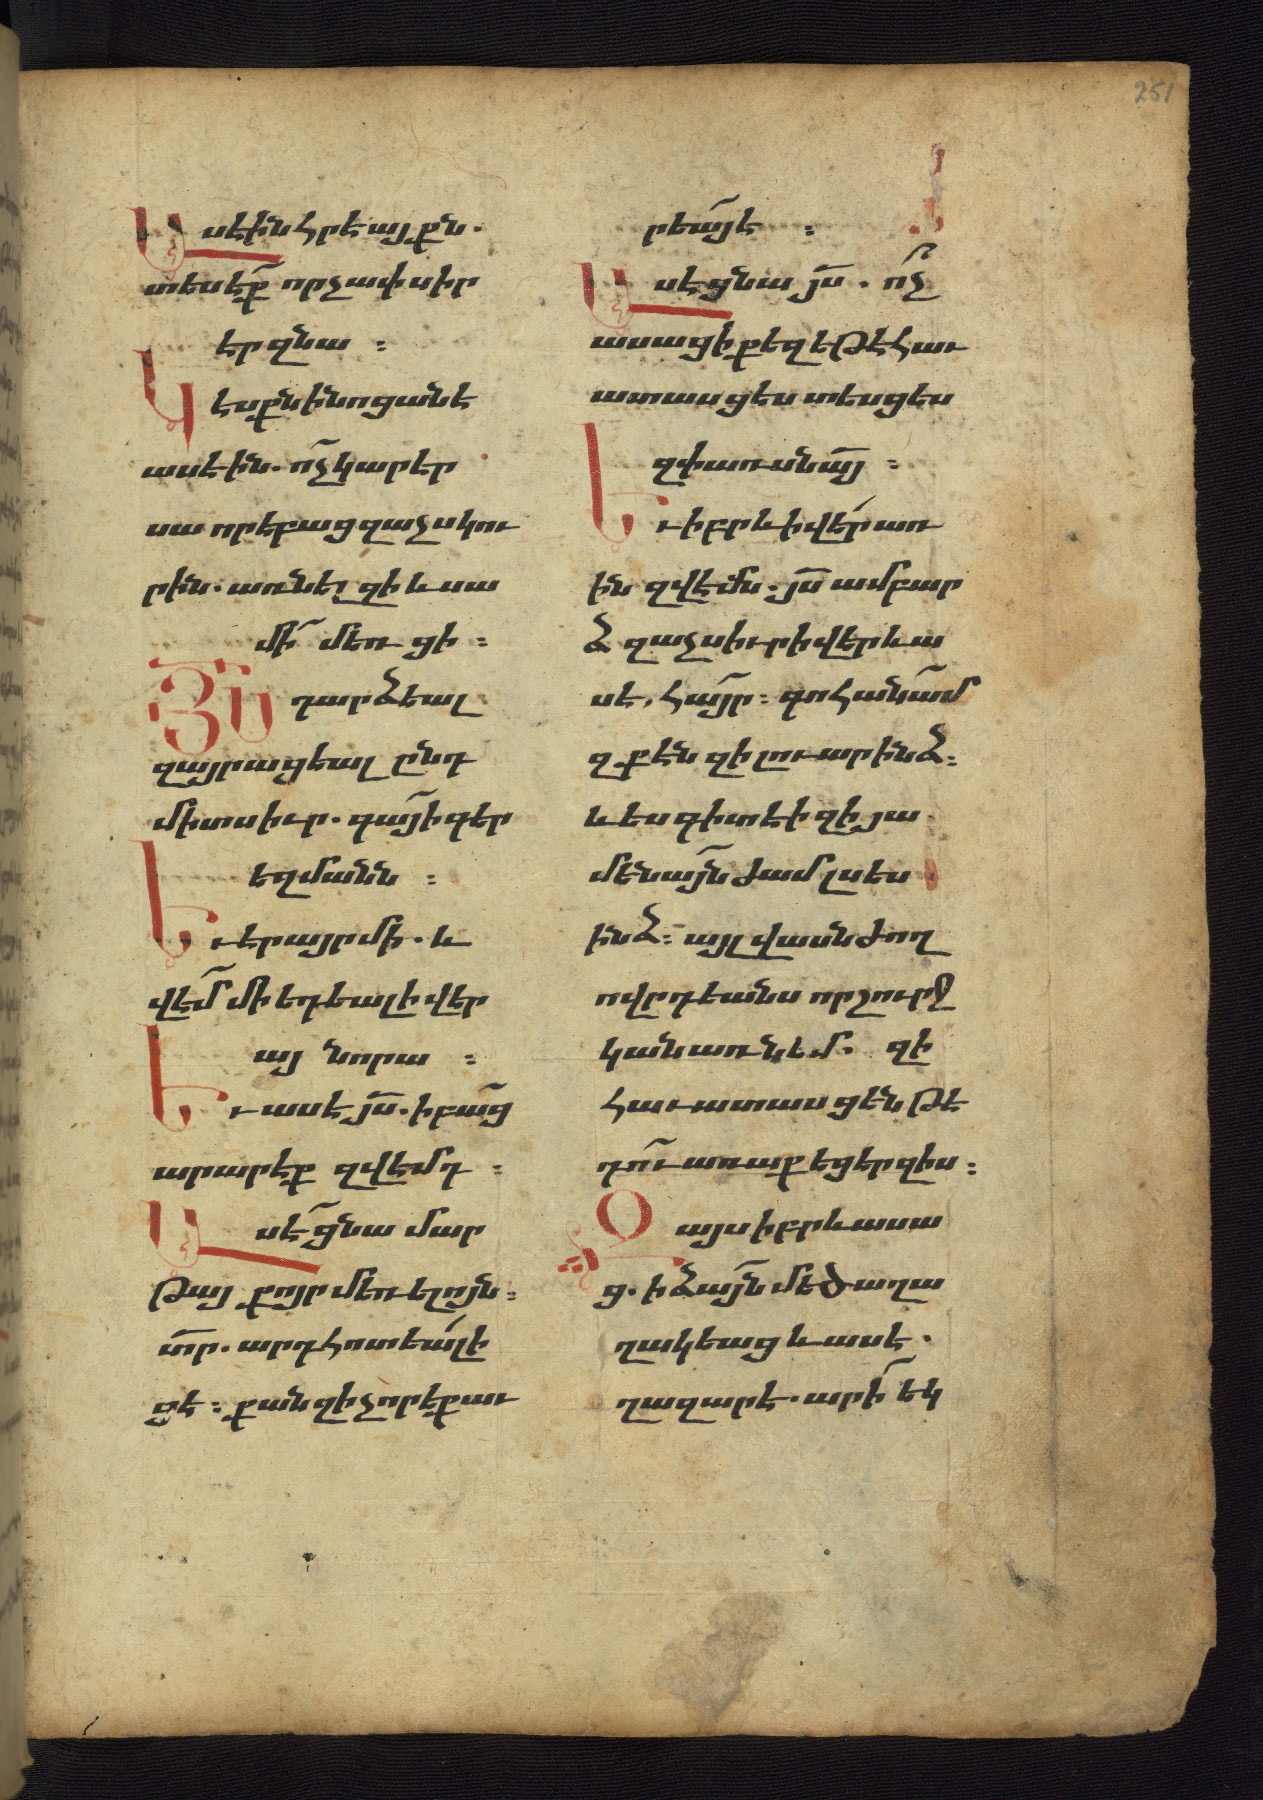 251
Ասէին հրէայքն.
տեսէք՟ որչափ սիր
էր զնա :
Կէսքն ի նոցանէ
ասէին. ո՟չ կարէր
սա որ եբաց զաչս կու
րին. առնել զի և սա
մի՟ մեռցի :
Յս՟ դարձեալ
զայրացեալ ընդ
միտս իւր. գա՟յ ի գեր
եզմանն :
Եւ էր այր մի. և
վէմ՟ մի եդեալ ի վեր
այ նորա :
Եւ ասէ յս՟. ի բա՟ց
արարէք զվէմդ :
Ասէ՟ ցնա մար
թայ քոյր մեռելոյն :
տ՟ր. արդ հոտեալ ի
ցէ : քանզի չորեքաւ
րեա՟յ է :
Ասէ ցնա յս՟. ո՟չ
ասացի քեզ եթէ հաւ
ատասցես տեսցես
զփառսն ա՟յ :
Եւ իբրև ի վեր առ
ին զվէմն. յս՟ ամբար
ձ զաչս իւր ի վեր և ա
սէ, հա՟յր : գոհանա՟մ
զքէն զի լուար ինձ :
և ես գիտէի զի յա
մենա՟յն ժամ լսես
ինձ : այլ վասն ժող
ովրդեանս որ շուրջ
կան առնեմ. զի
հաւատասցեն թէ
դո՟ւ առաքեցեր զիս :
Զայս իբրև ասա
ց. ի ձա՟յն մեծ աղա
ղակեաց և ասէ.
ղազարէ. արի՟ եկ